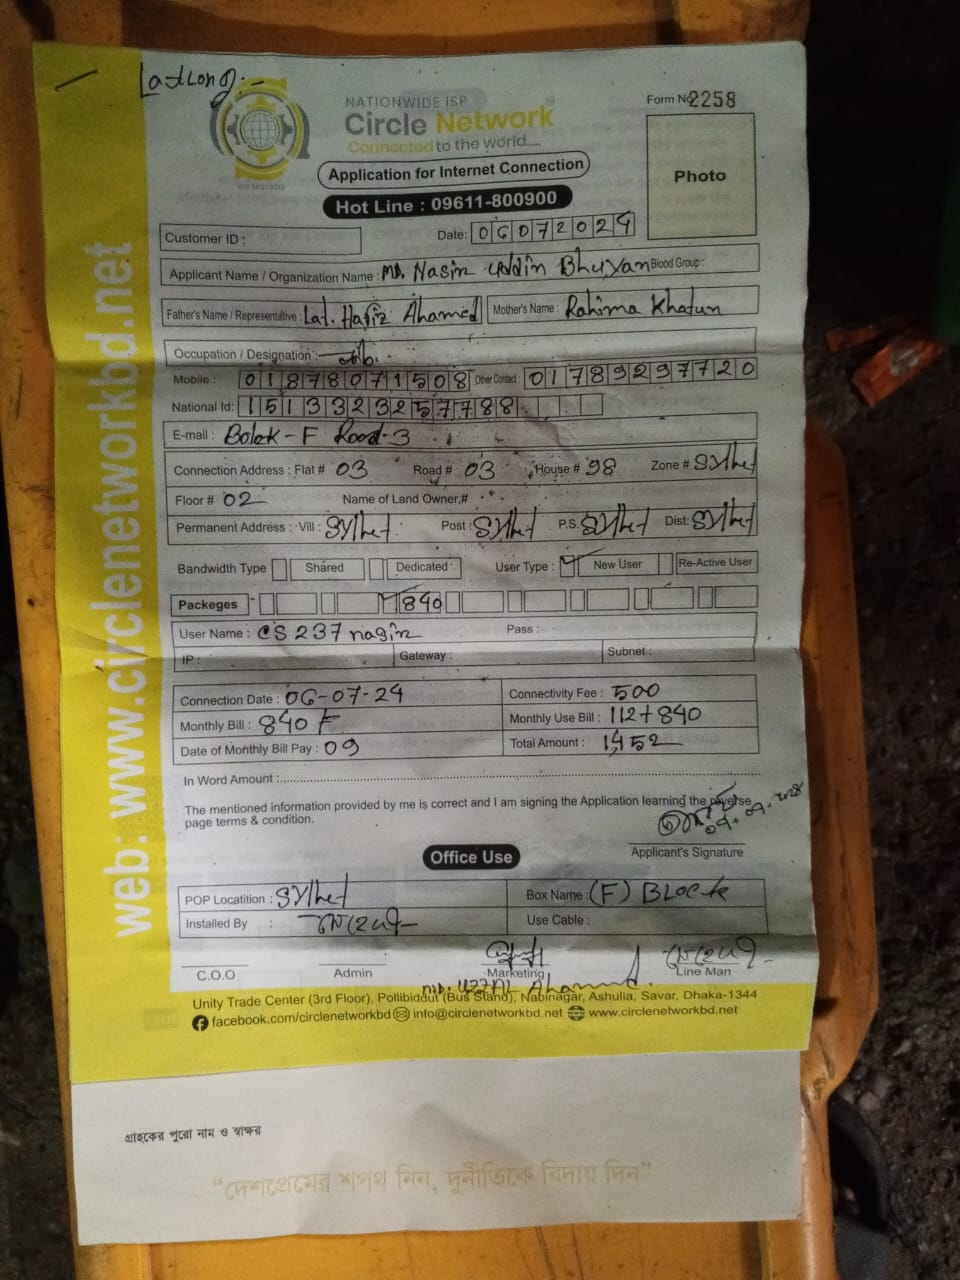 Lat Long :-
NATIONWIDE ISP
Circle Network
Connected to the world.....
Form No 2258
Photo
Application for Internet Connection
Hot Line : 09611-800900
Customer ID :
Date: 06072024
Applicant Name / Organization Name : MD. Nasir Uddin Bhuyan Blood Group:
Father's Name / Representative : Lat. Hafiz Ahamed Mother's Name : Rahima Khatun
Occupation / Designation :
Mobile : 01878071508 Other Contact : 01789297720
National Id: 1513323257788
E-mail : Bolok-F Road-3
Connection Address : Flat # 03 Road # 03 House # 98 Zone # Sylhet
Floor # 02 Name of Land Owner.#
Permanent Address : Vill : Sylhet Post : Sylhet P.S. Sylhet Dist: Sylhet
Bandwidth Type Shared Dedicated User Type : New User Re-Active User
Packeges 840
User Name : CS237nasir Pass :
IP : Gateway : Subnet :
Connection Date : 06-07-24 Connectivity Fee : 500
Monthly Bill : 840 Monthly Use Bill : 112+840
Date of Monthly Bill Pay : 09 Total Amount : 1452
In Word Amount :
The mentioned information provided by me is correct and I am signing the Application learning the reverse
page terms & condition.
Applicant's Signature
Office Use
POP Locatition : Sylhet Box Name : (F) BLock
Installed By : Use Cable :
C.O.O Admin Marketing Line Man
MD. Uzzal Ahamed
Unity Trade Center (3rd Floor), Pollibiddut (Bus Stand), Nabinagar, Ashulia, Savar, Dhaka-1344
facebook.com/circlenetworkbd info@circlenetworkbd.net www.circlenetworkbd.net
web: www.circlenetworkbd.net
গ্রাহকের পুরো নাম ও স্বাক্ষর
“দেশপ্রেমের শপথ নিন, দুর্নীতিকে বিদায় দিন”